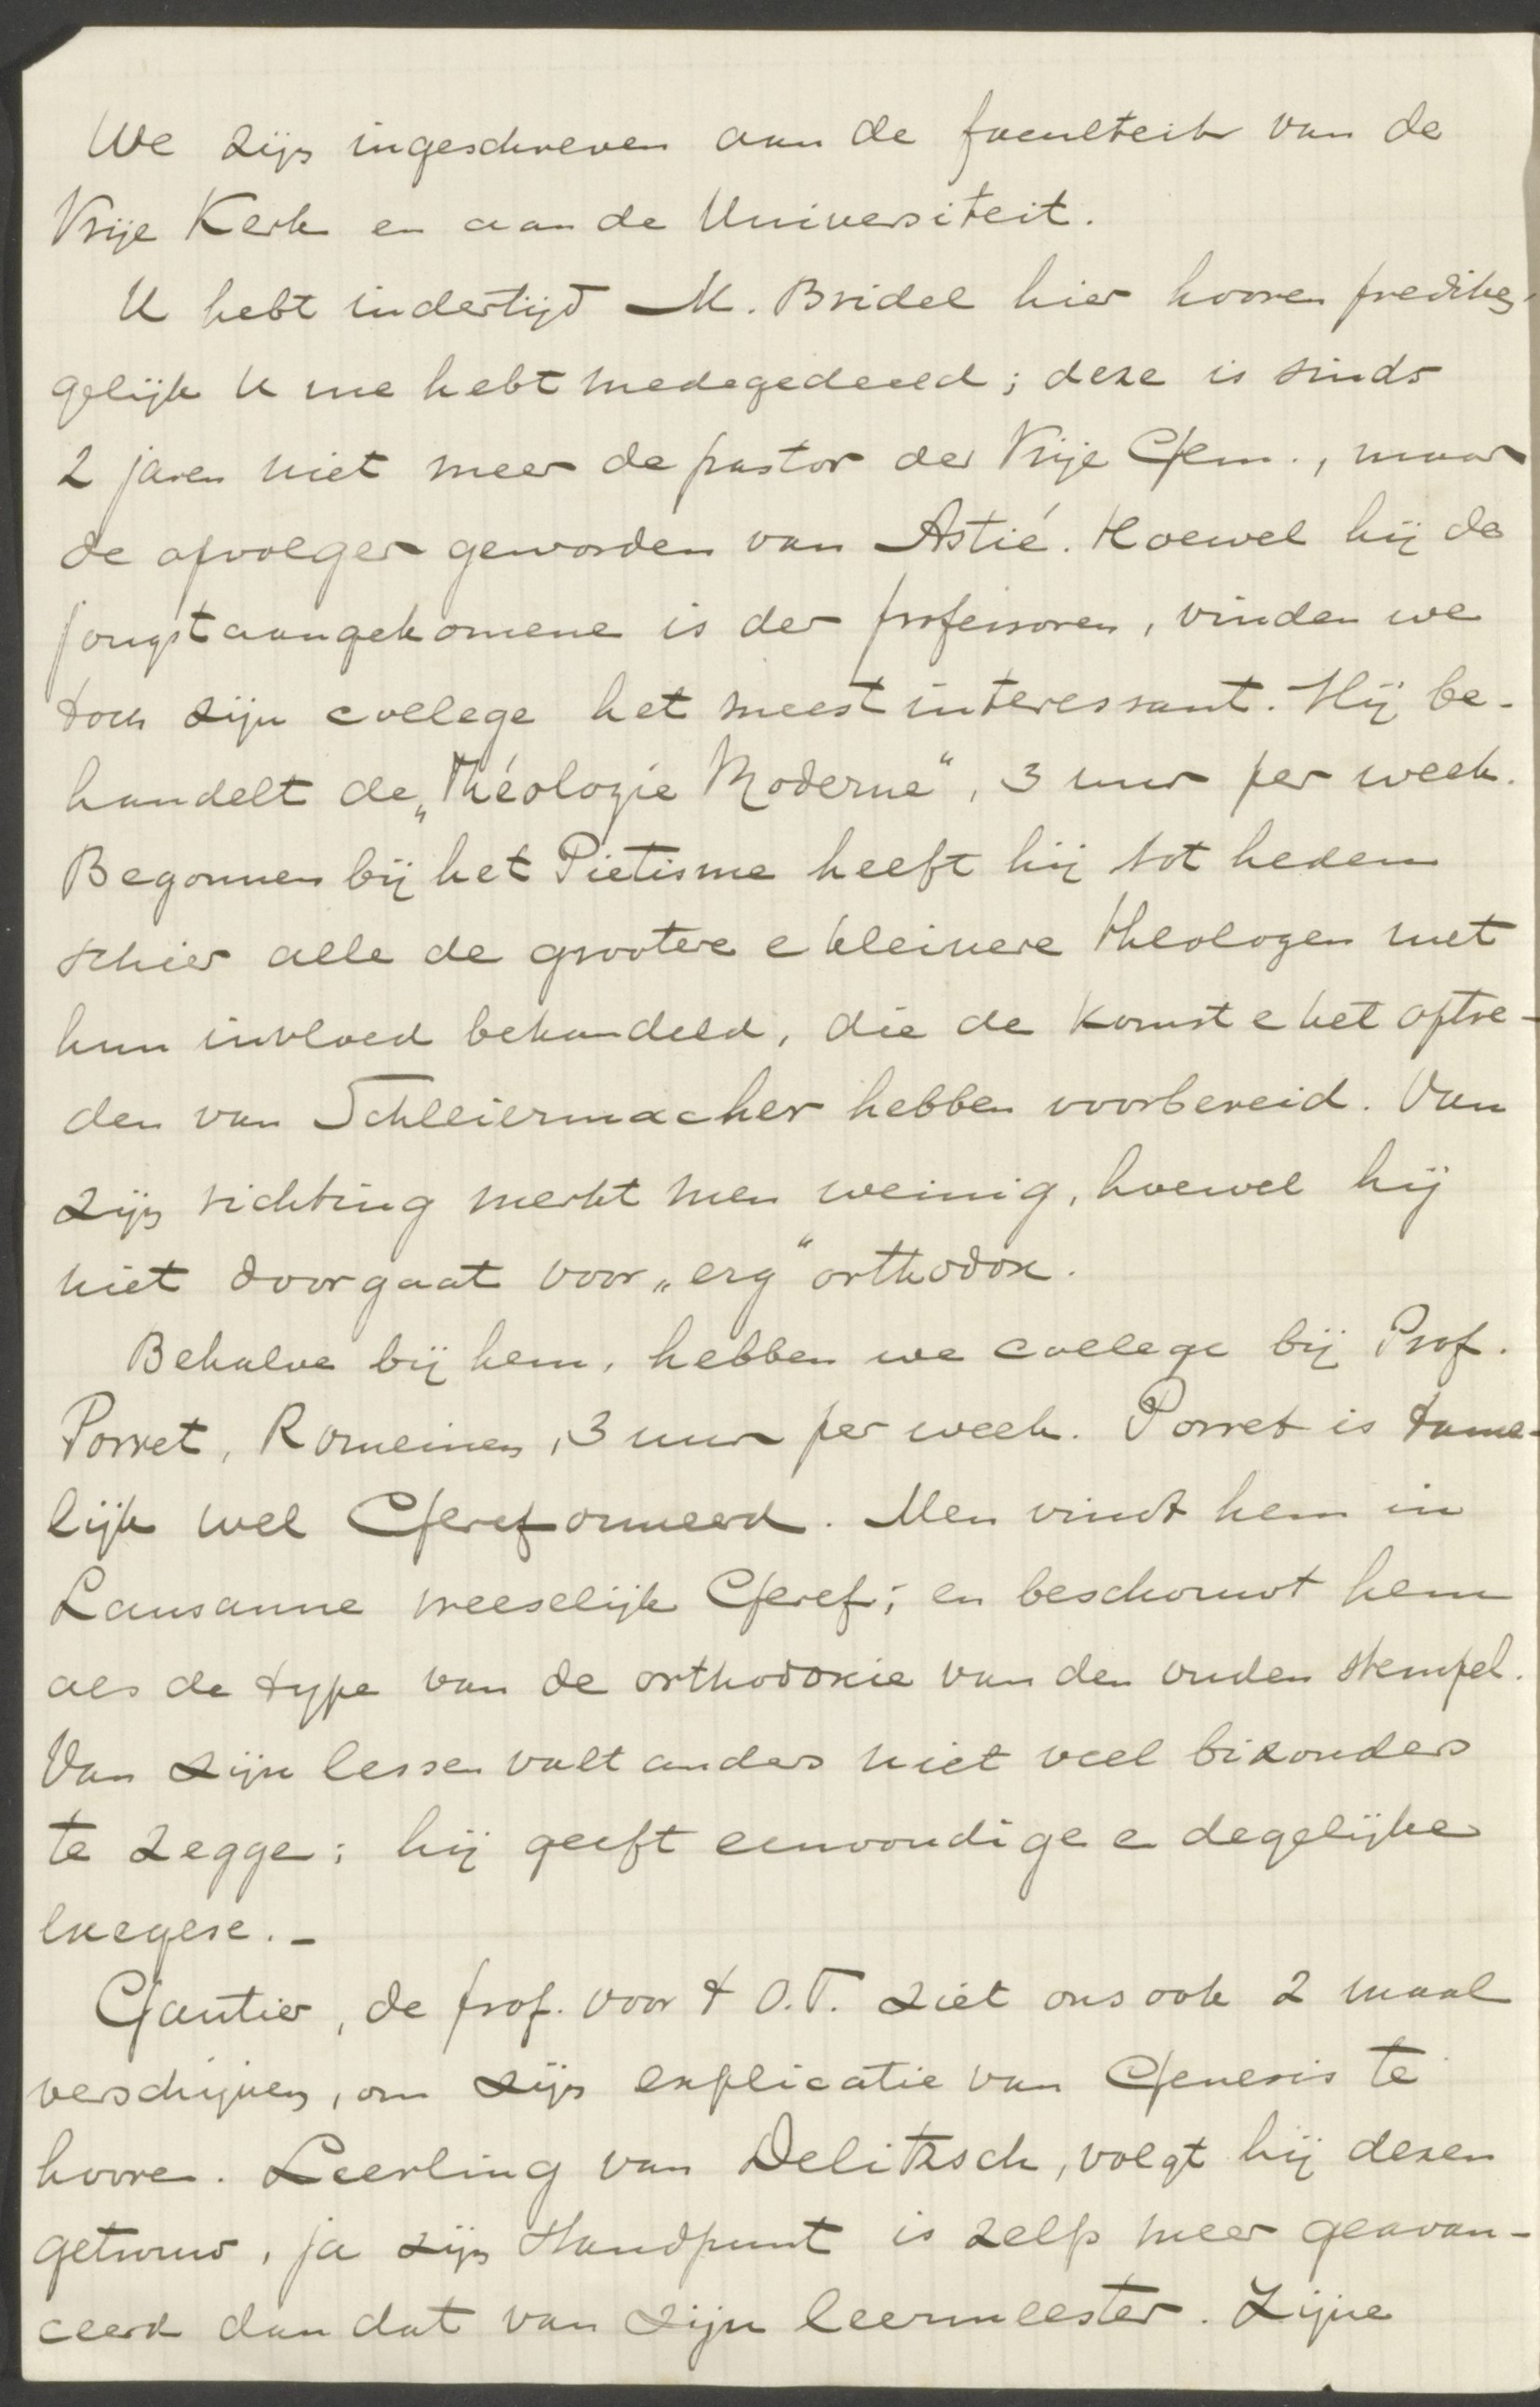 We zijn ingeschreven aan de faculteit van de
Vrije Kerk en aan de Universiteit.
U hebt indertijd M. Bridel hier hooren prediken,
gelijk U me hebt medegedeeld; deze is sinds
2 jaren niet meer de pastor der Vrije Gem., maar
de opvolger geworden van Astié. Hoewel hij de
jongstaangekomene is der professoren, vinden we
toch zijn college het meest interessant. Hij be-
handelt de „Théologie Moderne", 3 uur per week.
Begonnen bij het Pietisme heeft hij tot heden
schier alle de grootere e kleinere theologen met
hun invloed behandeld, die de komst e het optre-
den van Schleiermacher hebben voorbereid. Van
zijn richting merkt men weinig, hoewel hij
niet doorgaat voor „erg" orthodox.
Behalve bij hem, hebben we college bij Prof.
Porret, Romeinen, 3 uur per week. Porret is tame-
lijk wel Gereformeerd. Men vindt hem in
Lausanne vreeselijk Geref; en beschouwt hem
als de type van de orthodoxie van den ouden stempel.
Van zijn lessen valt anders niet veel bizonders
te zegge; hij geeft eenvoudige e degelijke
exegese. -
Gautier, de prof. voor t O.T. ziet ons ook 2 maal
verschijnen, om zijn explicatie van Genesis te
hooren. Leerling van Delitzsch, volgt hij dezen
getrouw, ja zijn standpunt is zelfs meer geavan-
ceerd dan dat van zijn leermeester. Zijne